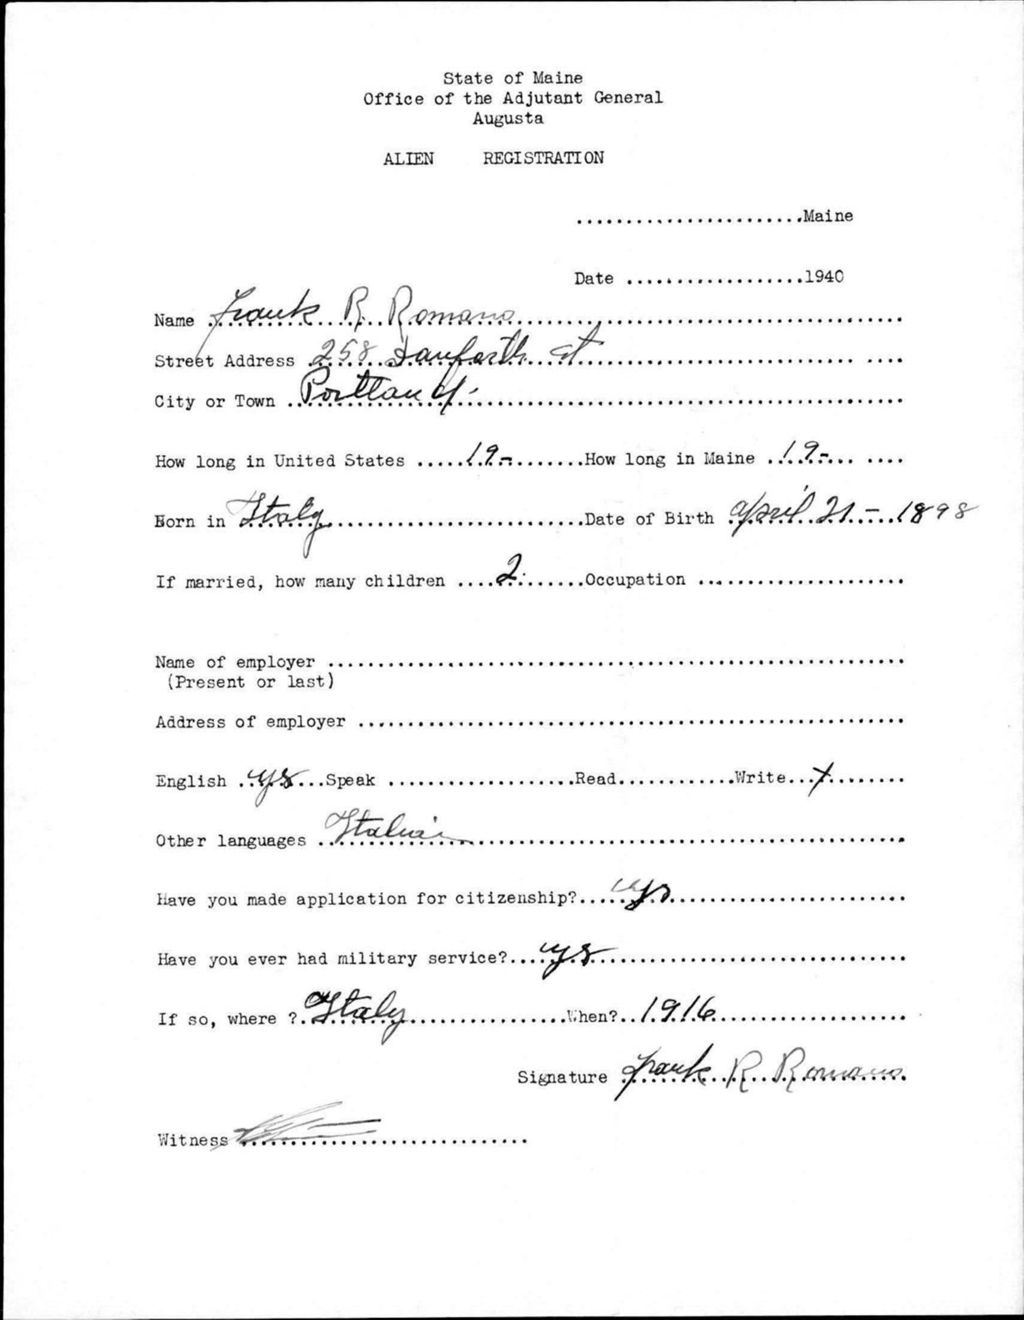 State of Maine
Office of the Adjutant General
Augusta
ALIEN REGISTRATION
.......................Maine
Date ..................1940
Name Frank R. Romano
Street Address 258 Danforth St
City or Town Portland
How long in United States .....19-........How long in Maine ..19-.... ....
Born in Italy.........................Date of Birth April 21-1898
If married, how many children ....2.......Occupation ....................
Name of employer ..........................................................
(Present or last)
Address of employer .......................................................
English ..yes...Speak ...................Read............Write...x........
Other languages ..Italian............................................
Have you made application for citizenship?.....yes........................
Have you ever had military service?....yes...............................
If so, where ?.Italy................When?..1916...................
Signature Frank R Romano
Witness .............................